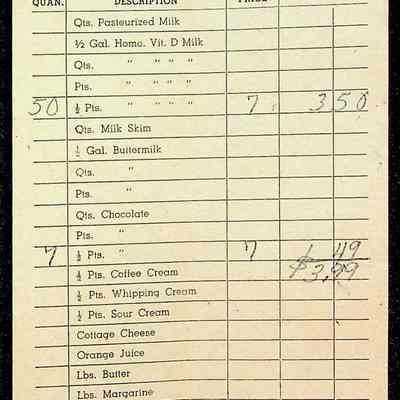 QUAN. DESCRIPTION PRICE
Qts. Pasteurized Milk
½ Gal. Homo. Vit. D Milk
Qts. " " " "
Pts. " " " "
50 ½ Pts. " " " " 7 3 50
Qts. Milk Skim
½ Gal. Buttermilk
Qts. "
Pts. "
Qts. Chocolate
Pts. "
7 ½ Pts. " 7 49
½ Pts. Coffee Cream $3.99
½ Pts. Whipping Cream
½ Pts. Sour Cream
Cottage Cheese
Orange Juice
Lbs. Butter
Lbs. Margarine